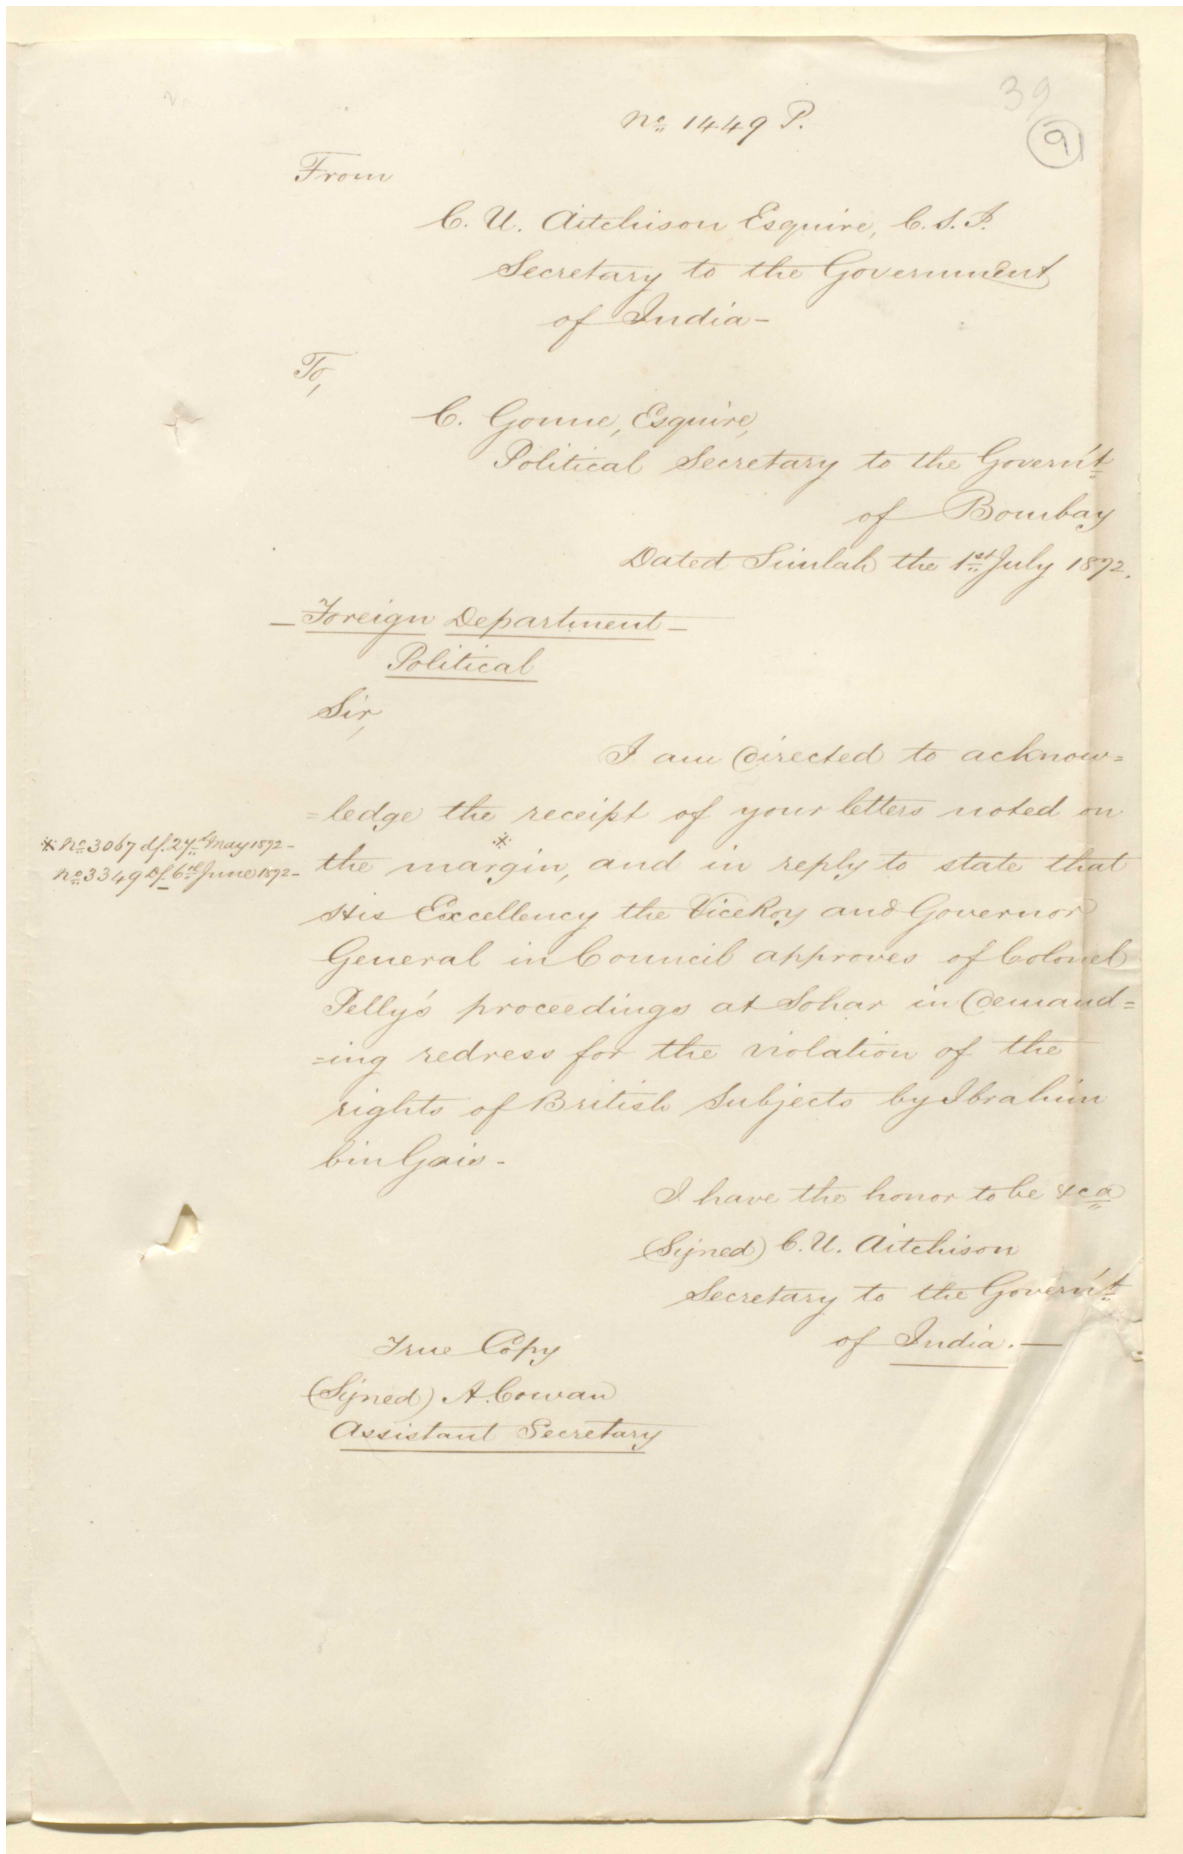 39
9
No. 1449 P.
From
C. U. Aitchison Esquire, C. S. I.
Secretary to the Government
of India-
To,
C. Gonne, Esquire,
Political Secretary to the Govern't
of Bombay
Dated Simlah the 1st July 1872.
Foreign Department-
Political
Sir,
I am directed to acknow=
=ledge the receipt of your letters noted on
* No. 3067 d/. 27th May 1872-
the margin,* and in reply to state that
No. 3349 d/. 6th June 1872-
His Excellency the ViceRoy and Governor
General in Council approves of Colonel
Pelly's proceedings at Sohar in demand=
=ing redress for the violation of the
rights of British Subjects by Ibrahim
bin Gais-
I have the honor to be &ca
(Signed) C. U. Aitchison
Secretary to the Govern't
of India.-
True Copy
(Signed) A. Cowan
Assistant Secretary